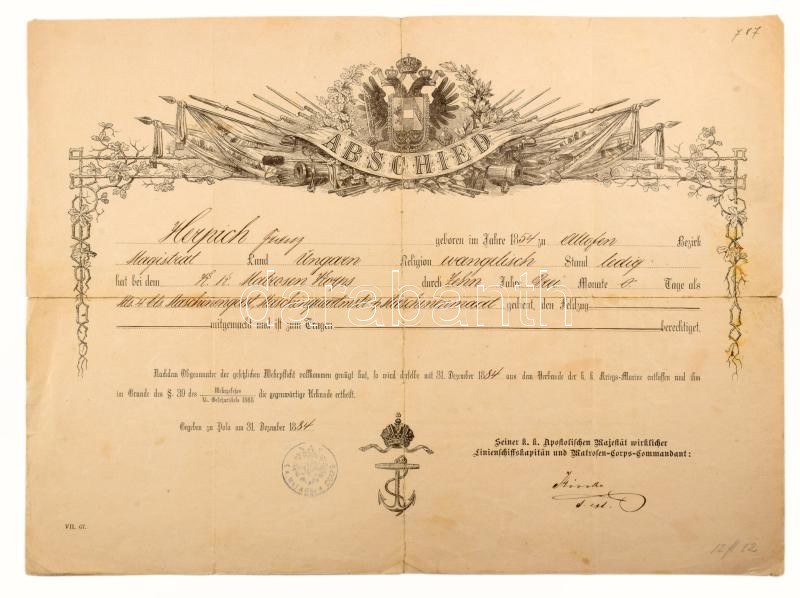 787
ABSCHIED
Herpich geboren im Jahre 1854 zu Altofen Bezirk
Magistrat Land Ungarn Religion evangelisch Stand ledig
hat bei dem K. K. Matrosen Korps durch Zehn Jahre Monate Tage als
gedient, den Feldzug
mitgemacht und ist zum Tragen berechtiget.
darabanth
Nachdem Obgenannter der gesetzlichen Wehrpflicht vollkommen genügt hat, so wird derselbe mit 31. Dezember 1884 aus dem Verbande der k. k. Kriegs-Marine entlassen und ihm
im Grunde des §. 39 des Wehrgesetzes die gegenwärtige Urkunde ertheilt.
Gegeben zu Pola am 31. Dezember 1884
Seiner k. k. Apostolischen Majestät wirklicher
Linienschiffskapitän und Matrosen-Corps-Commandant:
VII. 67.